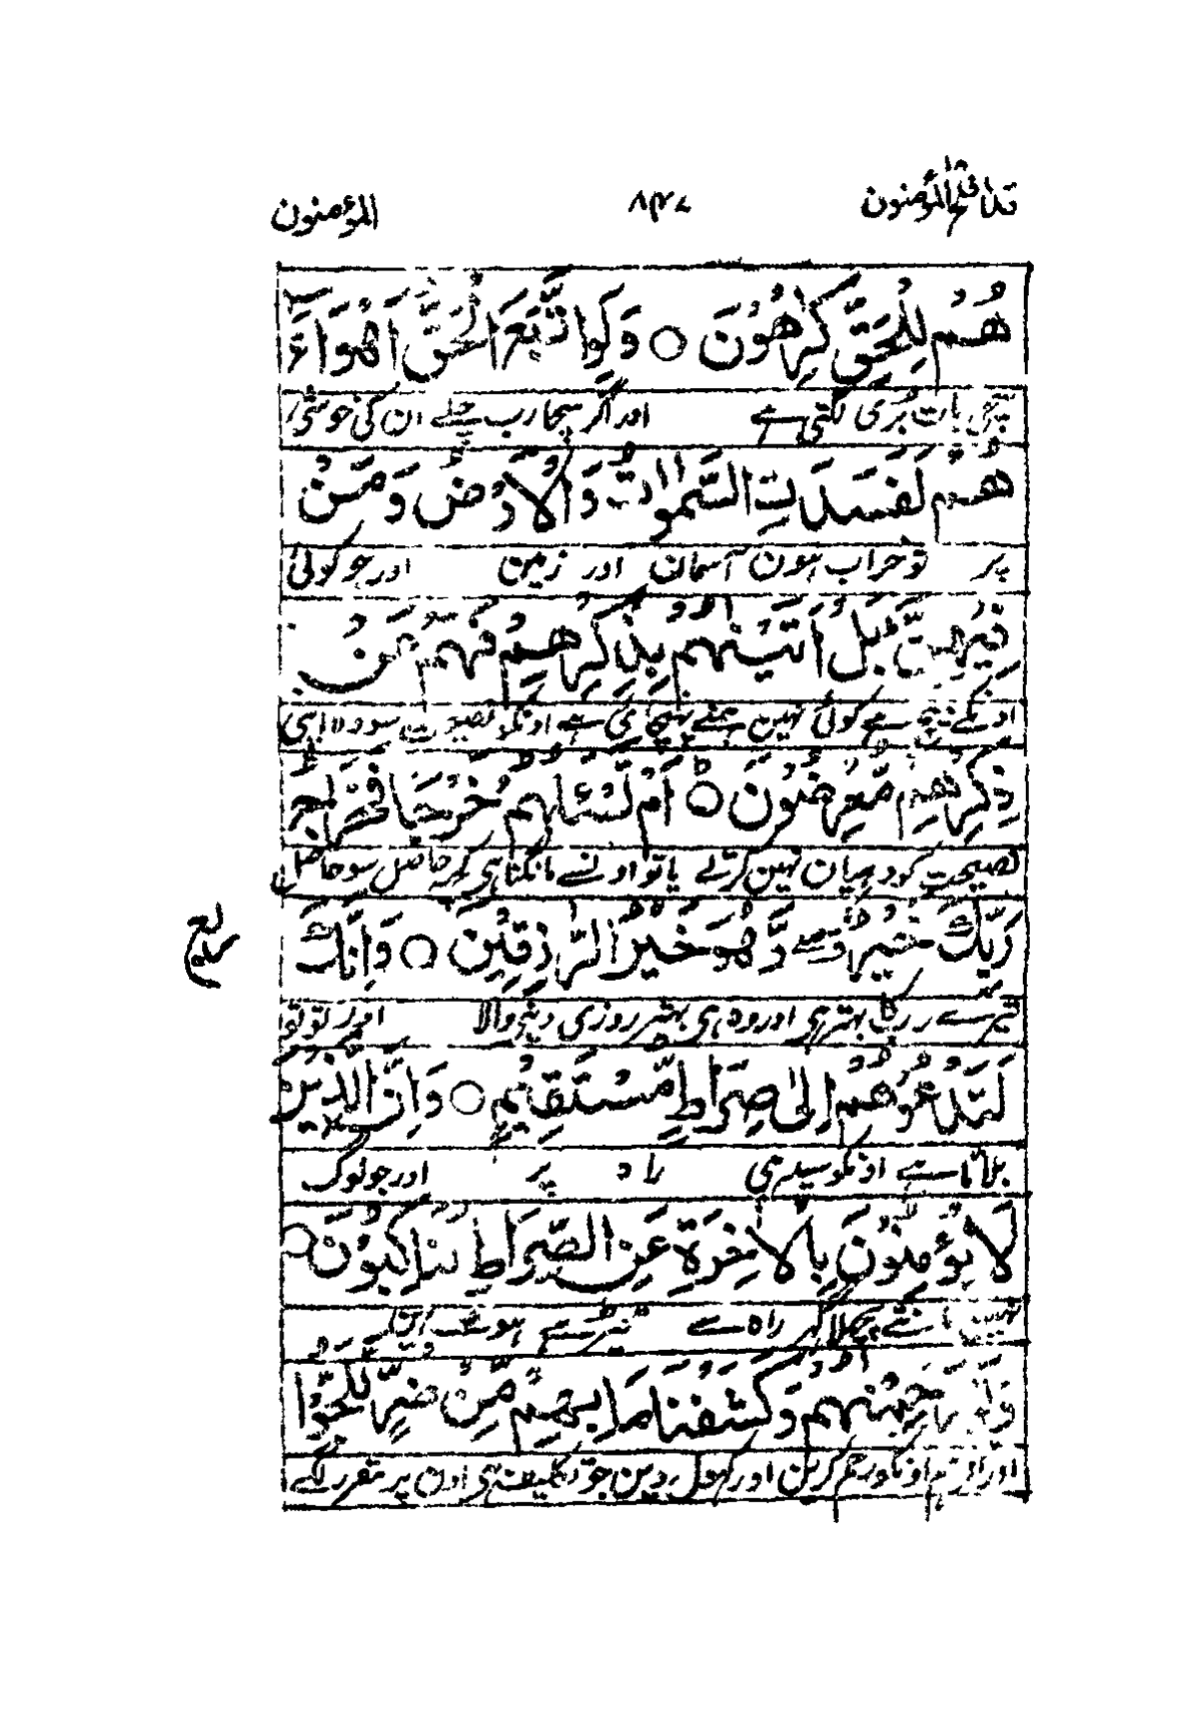 قد افلح المؤمنون ۸۴۷ المؤمنون
هُمْ لِلْحَقِّ كٰرِهُوْنَ ○ وَلَوِ اتَّبَعَ الْحَقُّ اَهْوَآءَ
سچی بات بُری لگتی ہے اور اگر سچا رب چلے ان کی خوشی
هُمْ لَفَسَدَتِ السَّمٰوٰتُ وَالْاَرْضُ وَمَنْ
پر تو خراب ہون آسمان اور زمین اور جو کوئی
فِيْهِنَّ ؕ بَلْ اَتَيْنٰهُمْ بِذِكْرِهِمْ فَهُمْ عَنْ
اونکے بیچ ہے کوئی نہین ہمنے پہنچائی ہے اونکو نصیحت سو وہ اپنی
ذِكْرِهِمْ مُّعْرِضُوْنَ ○ اَمْ تَسْـَٔلُهُمْ خَرْجًا فَخَرَاجُ
نصیحت کو دہیان نہین کرتے یا تو اونسے مانگتا ہی کچھ حاصل سو حاصل
رَبِّكَ خَيْرٌ وَّهُوَ خَيْرُ الرّٰزِقِيْنَ ○ وَاِنَّكَ
ربع
تیرے رب کا بہتر ہی اور وہ ہی بہتر روزی دینے والا اور تو تو
لَتَدْعُوْهُمْ اِلٰى صِرَاطٍ مُّسْتَقِيْمٍ ○ وَاِنَّ الَّذِيْنَ
بلاتا ہے اونکو سیدہی راہ پر اور جو لوگ
لَا يُؤْمِنُوْنَ بِالْاٰخِرَةِ عَنِ الصِّرَاطِ لَنٰكِبُوْنَ ○
نہین مانتے پچھلا گہر راہ سے ٹیڑہے ہوئے ہین
وَلَوْ رَحِمْنٰهُمْ وَكَشَفْنَا مَا بِهِمْ مِّنْ ضُرٍّ لَّلَجُّوْا
اور اگر ہم اونکو رحم کرین اور کھول دین جو تکلیف ہی اون پر مقرر لگے